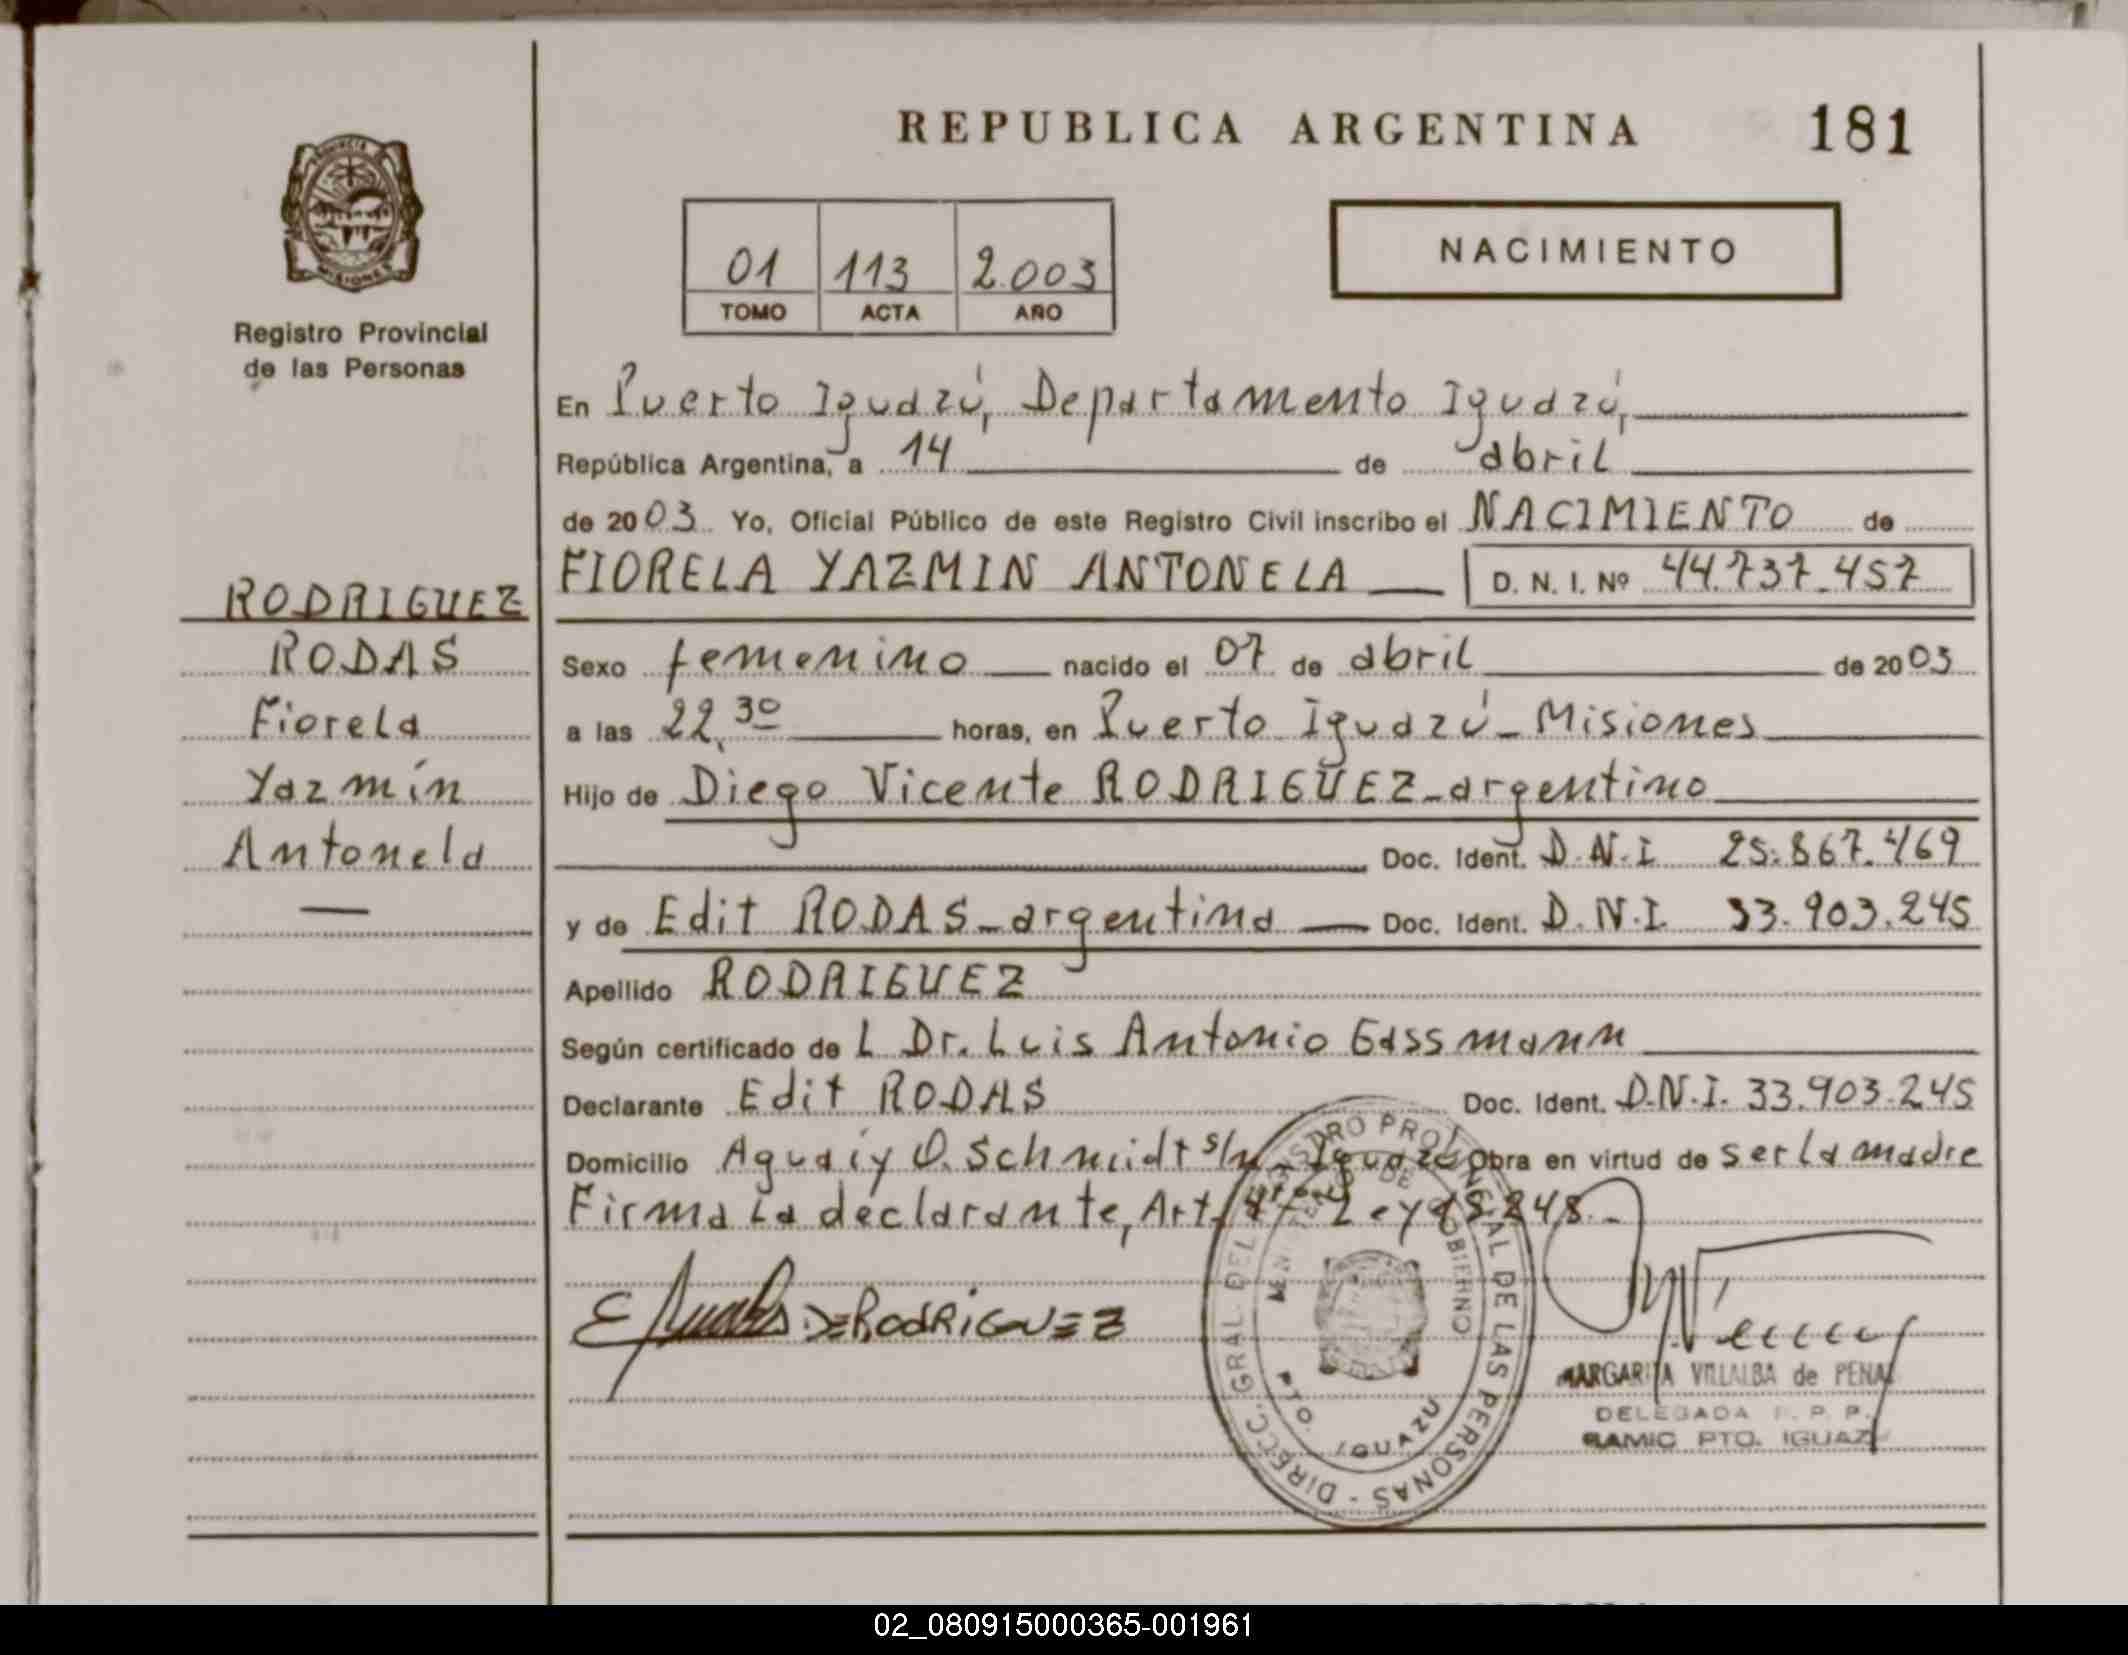 REPUBLICA ARGENTINA
181
PROVINCIA
MISIONES
Registro Provincial
de las Personas
01 113 2.003
TOMO ACTA AÑO
NACIMIENTO
En Puerto Iguazú, Departamento Iguazú,
República Argentina, a 14 de abril
de 2003 Yo, Oficial Público de este Registro Civil inscribo el NACIMIENTO de
FIORELA YAZMIN ANTONELA D. N. I. Nº 44.737.457
RODRIGUEZ
RODAS
Fiorela
Yazmín
Antonela
Sexo femenino nacido el 07 de abril de 2003
a las 22,30 horas, en Puerto Iguazú - Misiones
Hijo de Diego Vicente RODRIGUEZ - argentino
Doc. Ident. D.N.I 25.867.469
y de Edit RODAS - argentina Doc. Ident. D.N.I. 33.903.245
Apellido RODRIGUEZ
Según certificado de L Dr. Luis Antonio Gassmann
Declarante Edit RODAS Doc. Ident. D.N.I. 33.903.245
Domicilio Aguaí y O. Schmidt s/n - Iguazú Obra en virtud de ser la madre
Firma La declarante, Art. Ley 18.248.-
DE RODRIGUEZ
DIRECC. GRAL. DEL REGISTRO PROVINCIAL DE LAS PERSONAS -
MINISTERIO DE GOBIERNO
PTO. IGUAZU
MARGARITA VILLALBA de PENA
DELEGADA R. P. P.
RAMIC PTO. IGUAZU
02_080915000365-001961